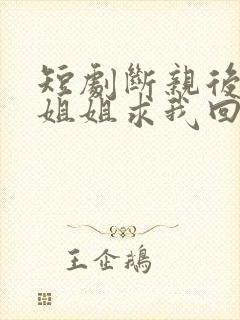 短劇斷親後
姐姐求我回
王企鵝